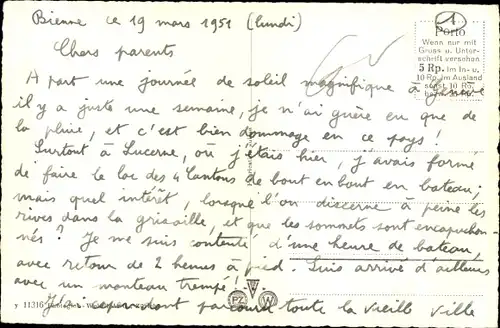 Bienne ce 19 mars 1951 (lundi)
Chers parents
A part une journée de soleil magnifique à Genève
il y a juste une semaine, je n'ai guère eu que de
la pluie, et c'est bien dommage en ce pays!
Surtout à Lucerne, où j'étais hier, j'avais formé
de faire le lac des 4 Cantons de bout en bout en bateau;
mais quel intérêt, lorsque l'on discerne à peine les
rives dans la grisaille, et que les sommets sont encapuchon-
nés? Je me suis contenté d'une heure de bateau,
avec retour de 2 heures à pied. Suis arrivé d'ailleurs
avec un manteau trempé!
J'ai cependant parcouru toute la vieille ville
1
Porto
Wenn nur mit
Gruss u. Unter-
schrift versehen
5 Rp. im In- u.
10 Rp. im Ausland
sonst 10 Rp.
y 11316
PZ W